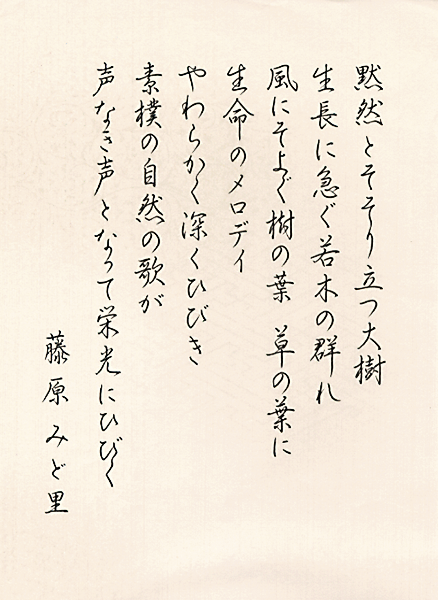 黙然とそそり立つ大樹
生長に急ぐ若木の群れ
風にそよぐ樹の葉　草の葉に
生命のメロディ
やわらかく深くひびき
素樸の自然の歌が
声なき声となって栄光にひびく
藤原みど里